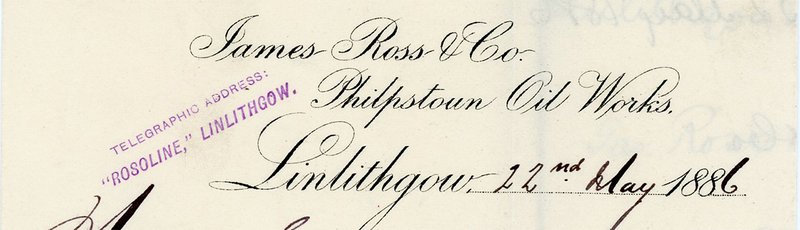 James Ross & Co.
Philpstoun Oil Works.
TELEGRAPHIC ADDRESS:
"ROSOLINE," LINLITHGOW.
Linlithgow, 22nd May 1886